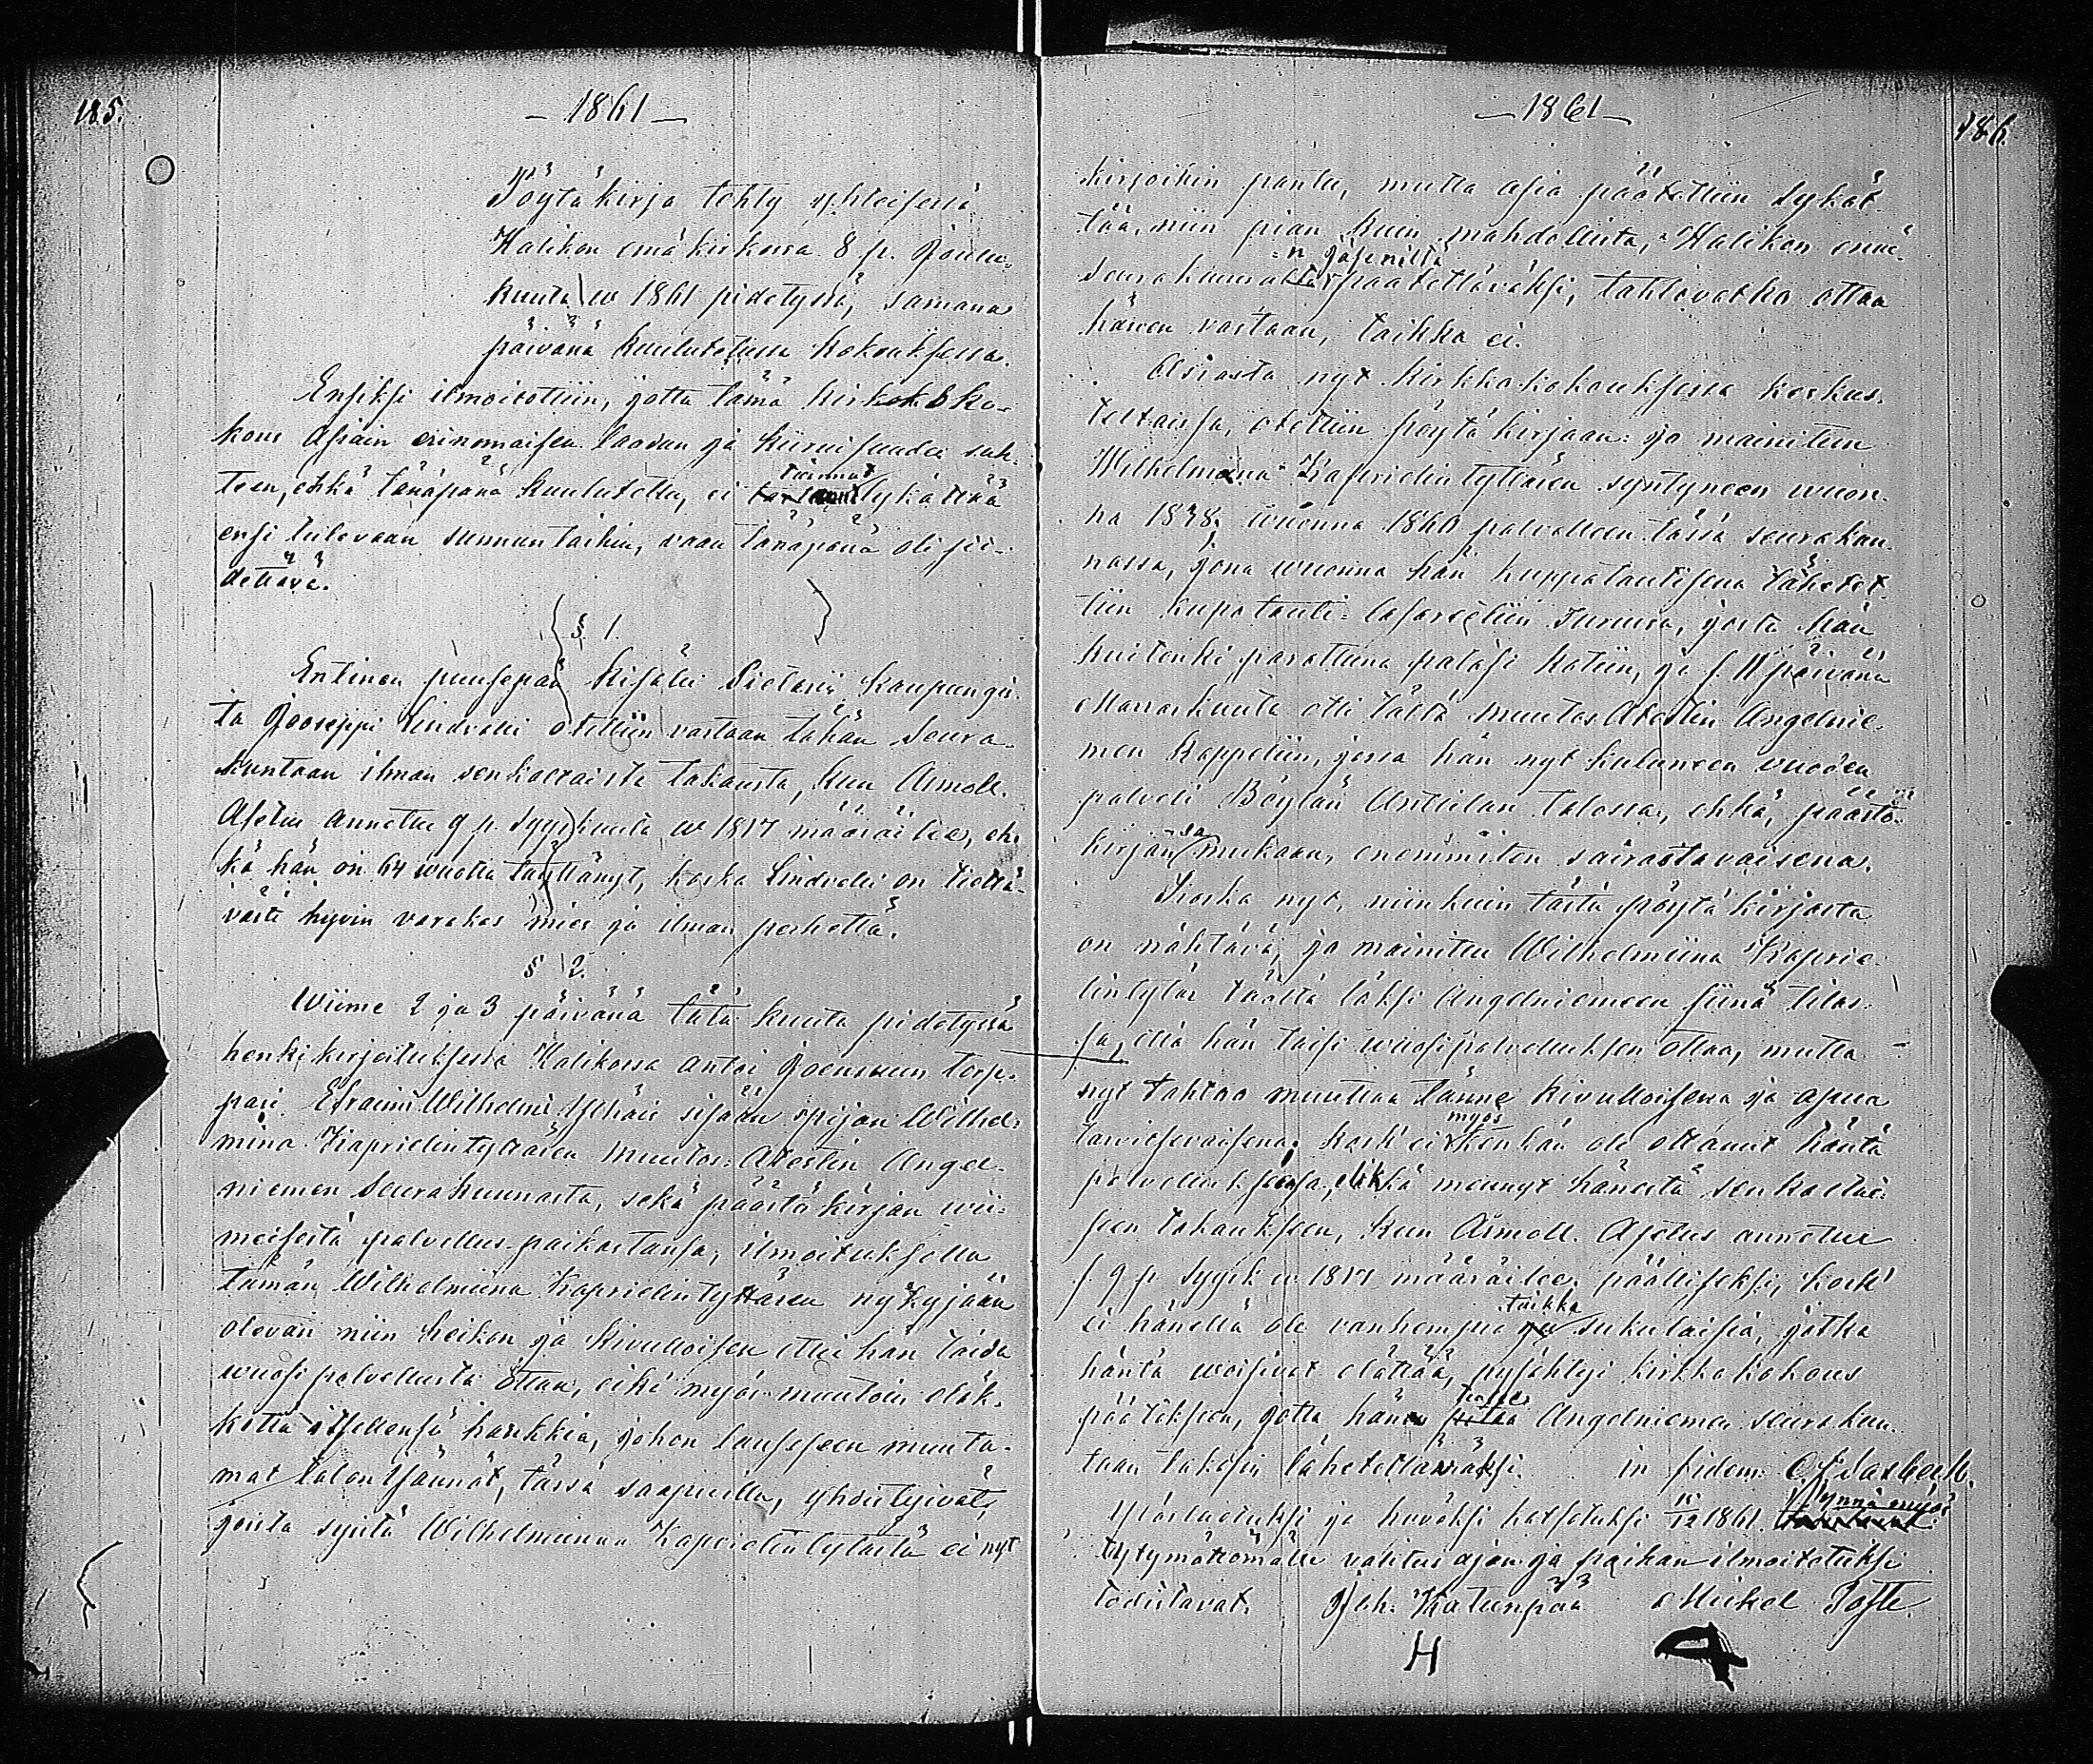 185.
- 1861 -
Pöytäkirja tehty yhteisessä
Halikon emäkirkossa 8 p. Joulu-
kuuta w 1861 pidetyssä, samana
päivänä kuulutetussa kokouksessa.
Ensiksi ilmoitettiin, jotta tämä kirkokko-
kous asiain erinomaisen laadun ja kiiruisuuden suh-
teen, ehkä tänäpänä kuulutettu, ei tainnut lykätünä
ensi tulevaan sunnuntaihin, vaan tänäpänä oli pi-
dettävä.
§. 1.
Entinen puusepän Kisälli Pietarin kaupungis-
ta Jooseppi Lindvalli otettiin vastaan tähän Seura-
kuntaan ilman senkaltaista takausta, kuu Armoll.
Asetus annettu 9 p. Syyskuuta w 1817 määräilee, eh-
kä hän on 64 wuotta täyttänyt, koska Lindvalli on tiettä-
västi hyvin varakas mies ja ilman perhettä.
§ 2.
Wiime 2 ja 3 päivänä tätä kuuta pidetyssä
henkikirjoituksessa Halikossa antoi Joensuun torp-
pari Efraim Wilhelmi sisään piijan Wilhel-
mina Kaprielintyttären Muutos-Atestin Angel-
niemen Seurakunnasta, sekä päästökirjan wii-
meisestä palvellus-paikastansa, ilmoituksella
tämän Wilhelmiina Kaprielintyttären nykyjään
olevan niin heikon ja kivulloisen ettei hän taida
wuosipalvellusta ottaa, eikä myös muutoin elät-
kettä itsellensä hankkia, johon lauseseen muuta-
mat talon Isännät, tässä saapuilla, yhdistyivät,
josta syystä Wilhelmiinaa Kaprielintytärtä ei nyt
186.
- 1861 -
kirjoihin pantu, mutta asia päätettiin lykät-
tää, niin pian kuin mahdollista, Halikon emä-
=n jäsenillä
seurakunnalta päätettäväksi, tahtovatko ottaa
hänen vastaan, taikka ei.
Asiasta nyt kirkkokokouksessa keskus-
teltaissa, otettiin pöytäkirjaan: jo mainitun
Wilhelmina Kaprielintyttären syntyneen wuon-
na 1838. wuonna 1860 palvelleen tässä seurakun-
nassa, jona wuonna hän kuppatautisena lähetet-
tiin kupatauti-lasarettiin Turussa, josta hän
kuitenki parattuna palasi kotiin, ja s. 11 päivänä
Marraskuuta otti tältä muutos Atestin Angelnie-
men kappeliin, jossa hän nyt kuluneen vuoden
palveli Böylän Anttilan talossa, ehkä, päästö-
kirjansa mukaan, enemmiten sairastavaisena.
Koska nyt, niinkuin tästä pöytäkirjasta
on nähtävä, jo mainittu Wilhelmiina Kaprie-
lintytär täältä läksi Angelniemeen siinä tilas-
sa, että hän taisi wuosipalveluksen ottaa, mutta
nyt tahtoo muuttaa tänne kivulloisena ja apua
tarvitsevaisena; kosk' ei myös kenkän ole ottanut häntä
palvelluksensa, elikkä mennyt hänestä senkaltai-
seen takaukseen, kun Armoll. Asetus annettu
s. 9 p Syysk w 1817 määräilee; päälliseksi, kosk'
ei hänellä ole vanhempia taikka sukulaisia, jotka
häntä woisivat elättää, pysähtyi kirkkokokous
päätökseen, jotta hän tulee Angelniemen seurakun-
taan takasin lähetettäväksi. in fidem:
Ylösluetuksi ja hyväksi katsotuksi 15/12 1861. ynnä myös
tytymättömälle valitus ajan ja paikan ilmoitetuksi
todistavat. Joh. Mikel
H